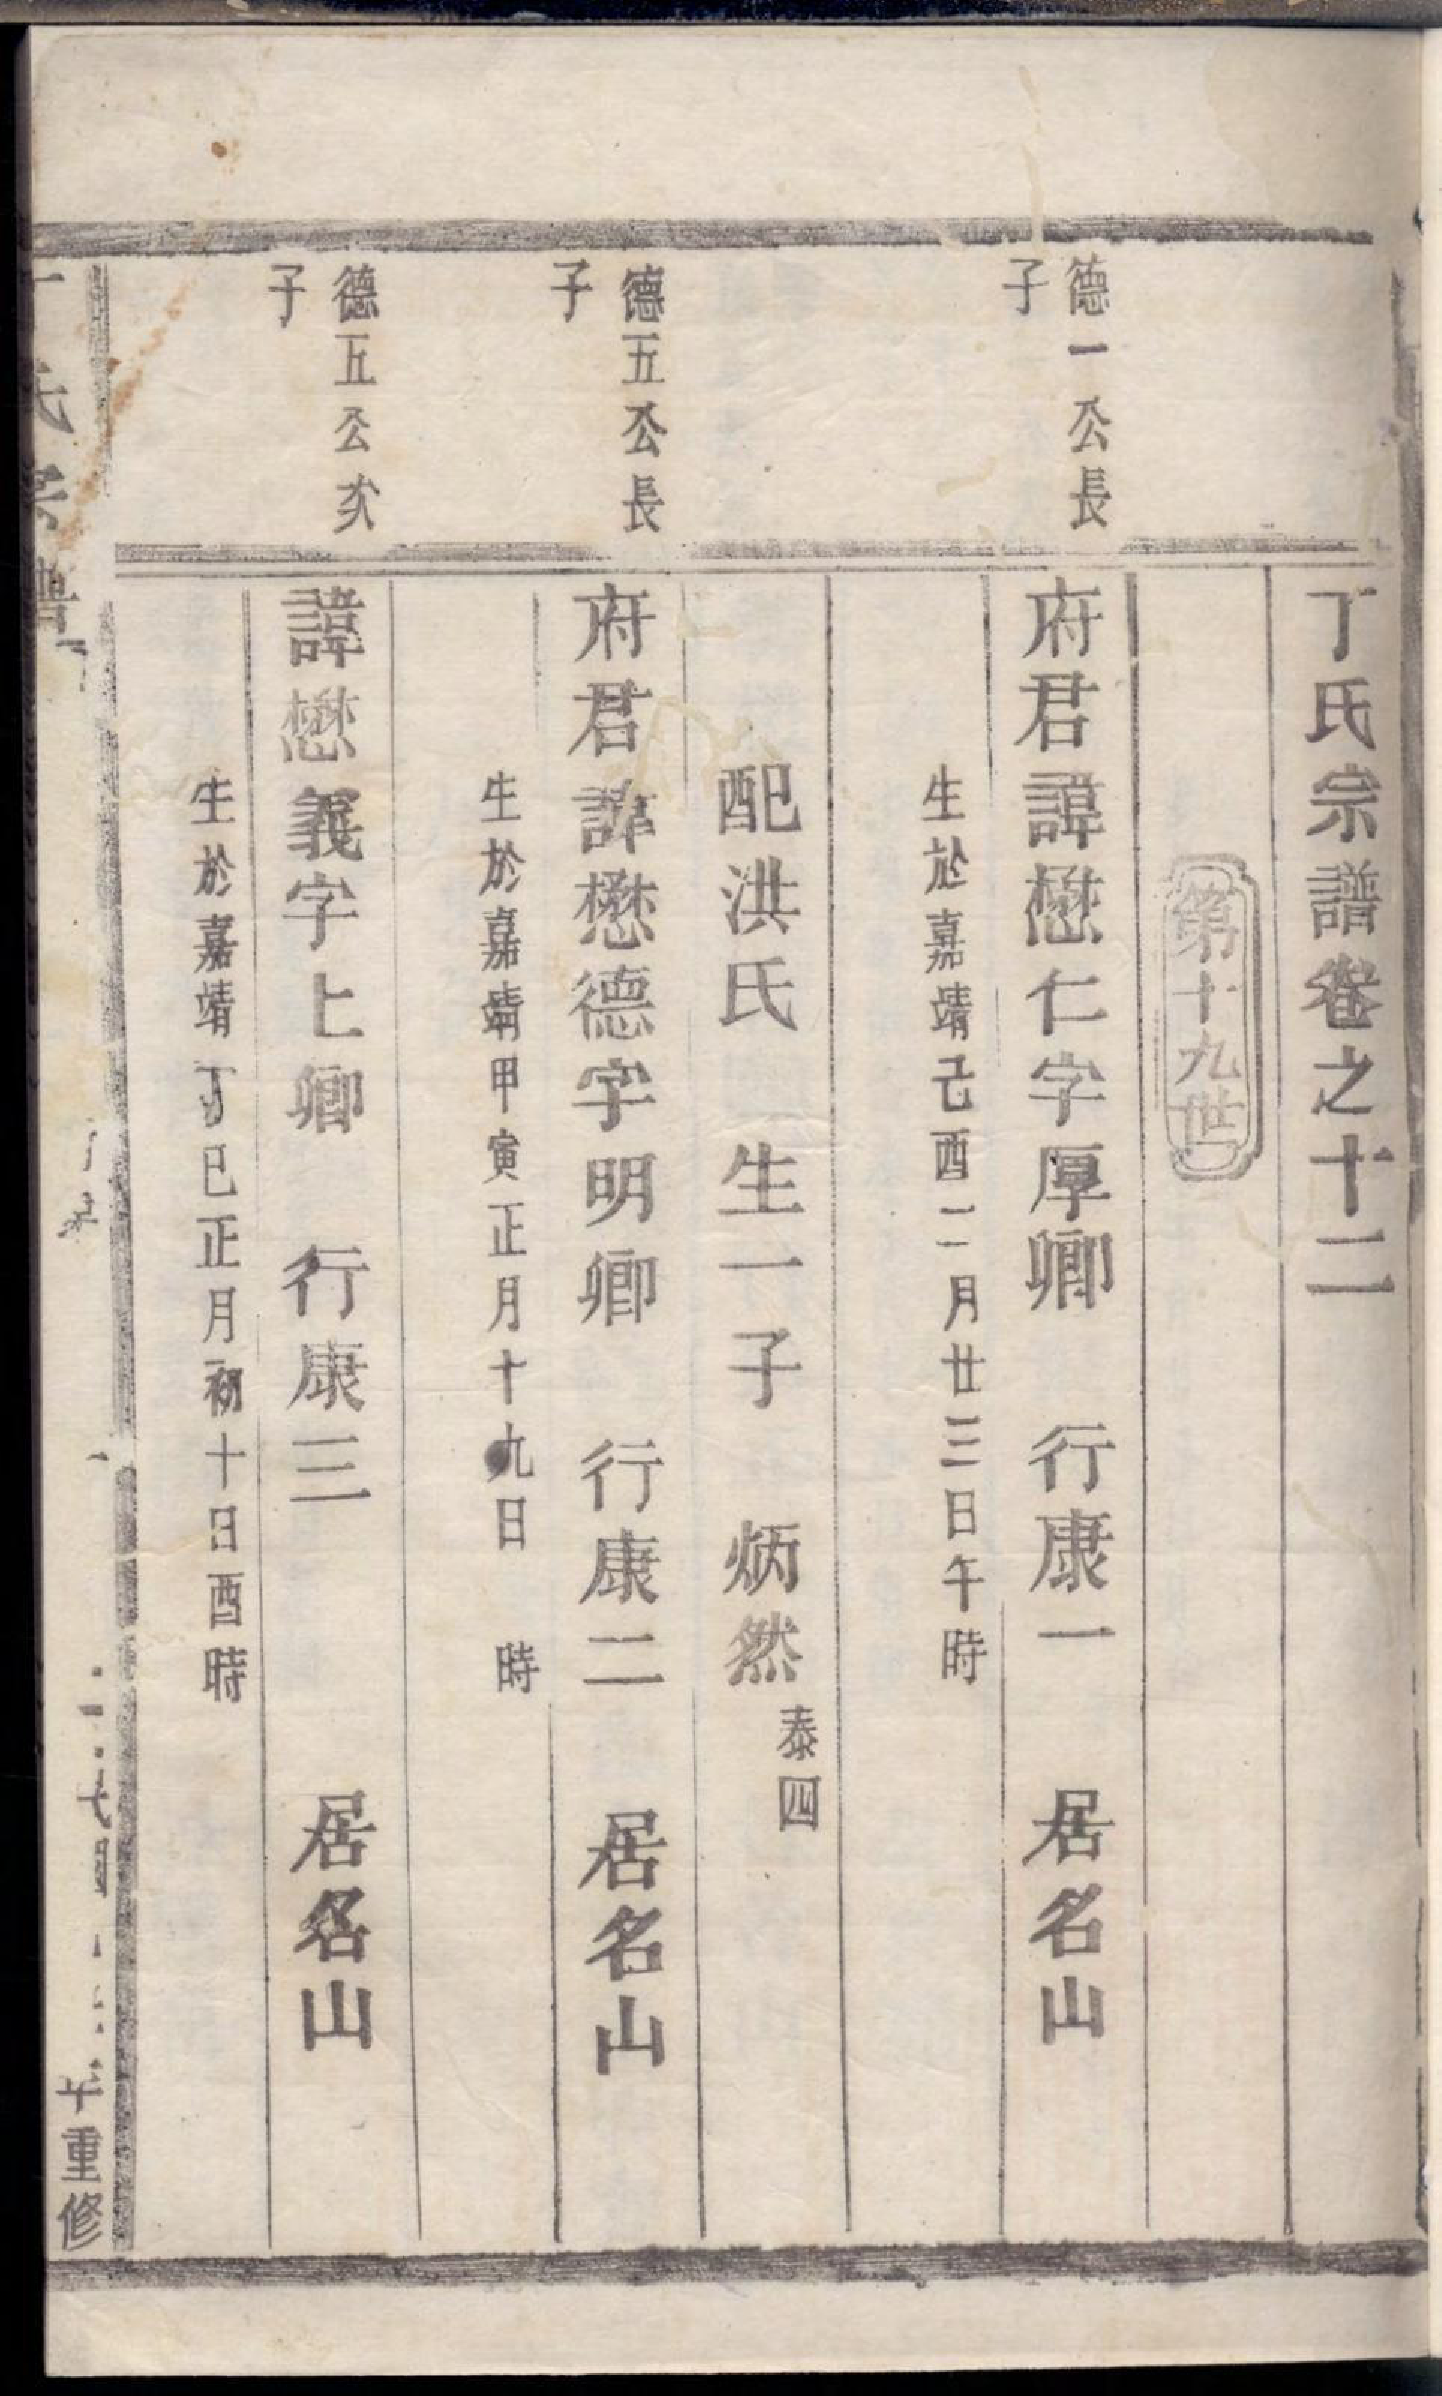 丁氏宗譜卷之十二
第十九世
德一公長
子
府君諱懋仁字厚卿 行康一 居名山
生於嘉靖己酉二月廿三日午時
配洪氏 生一子 炳然 泰四
德五公長
子
府君諱懋德字明卿 行康二 居名山
生於嘉靖甲寅正月十九日 時
德五公次
子
諱懋義字上卿 行康三 居名山
生於嘉靖丁巳正月初十日酉時
丁氏宗譜
年重修